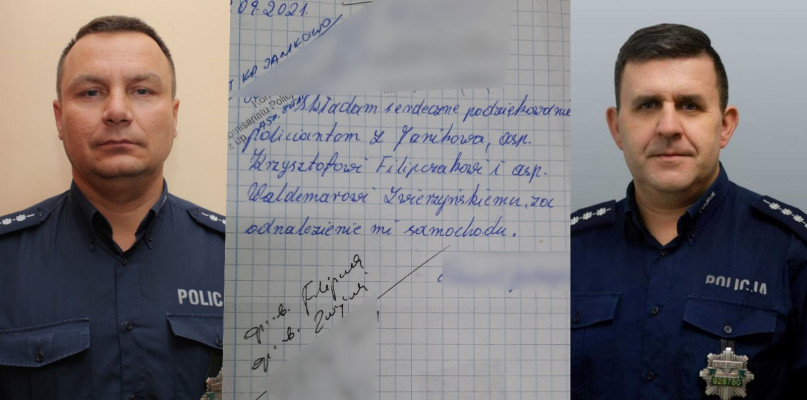 .09.2021
KP JANIKOWO
Komisariatu Policji
Składam serdeczne podziękowanie
policjantom z Janikowa, asp.
Krzysztofowi Filipczakowi i asp.
Waldemarowi Zwierzyńskiemu, za
odnalezienie mi samochodu.
POLIC
POLICJA
928760